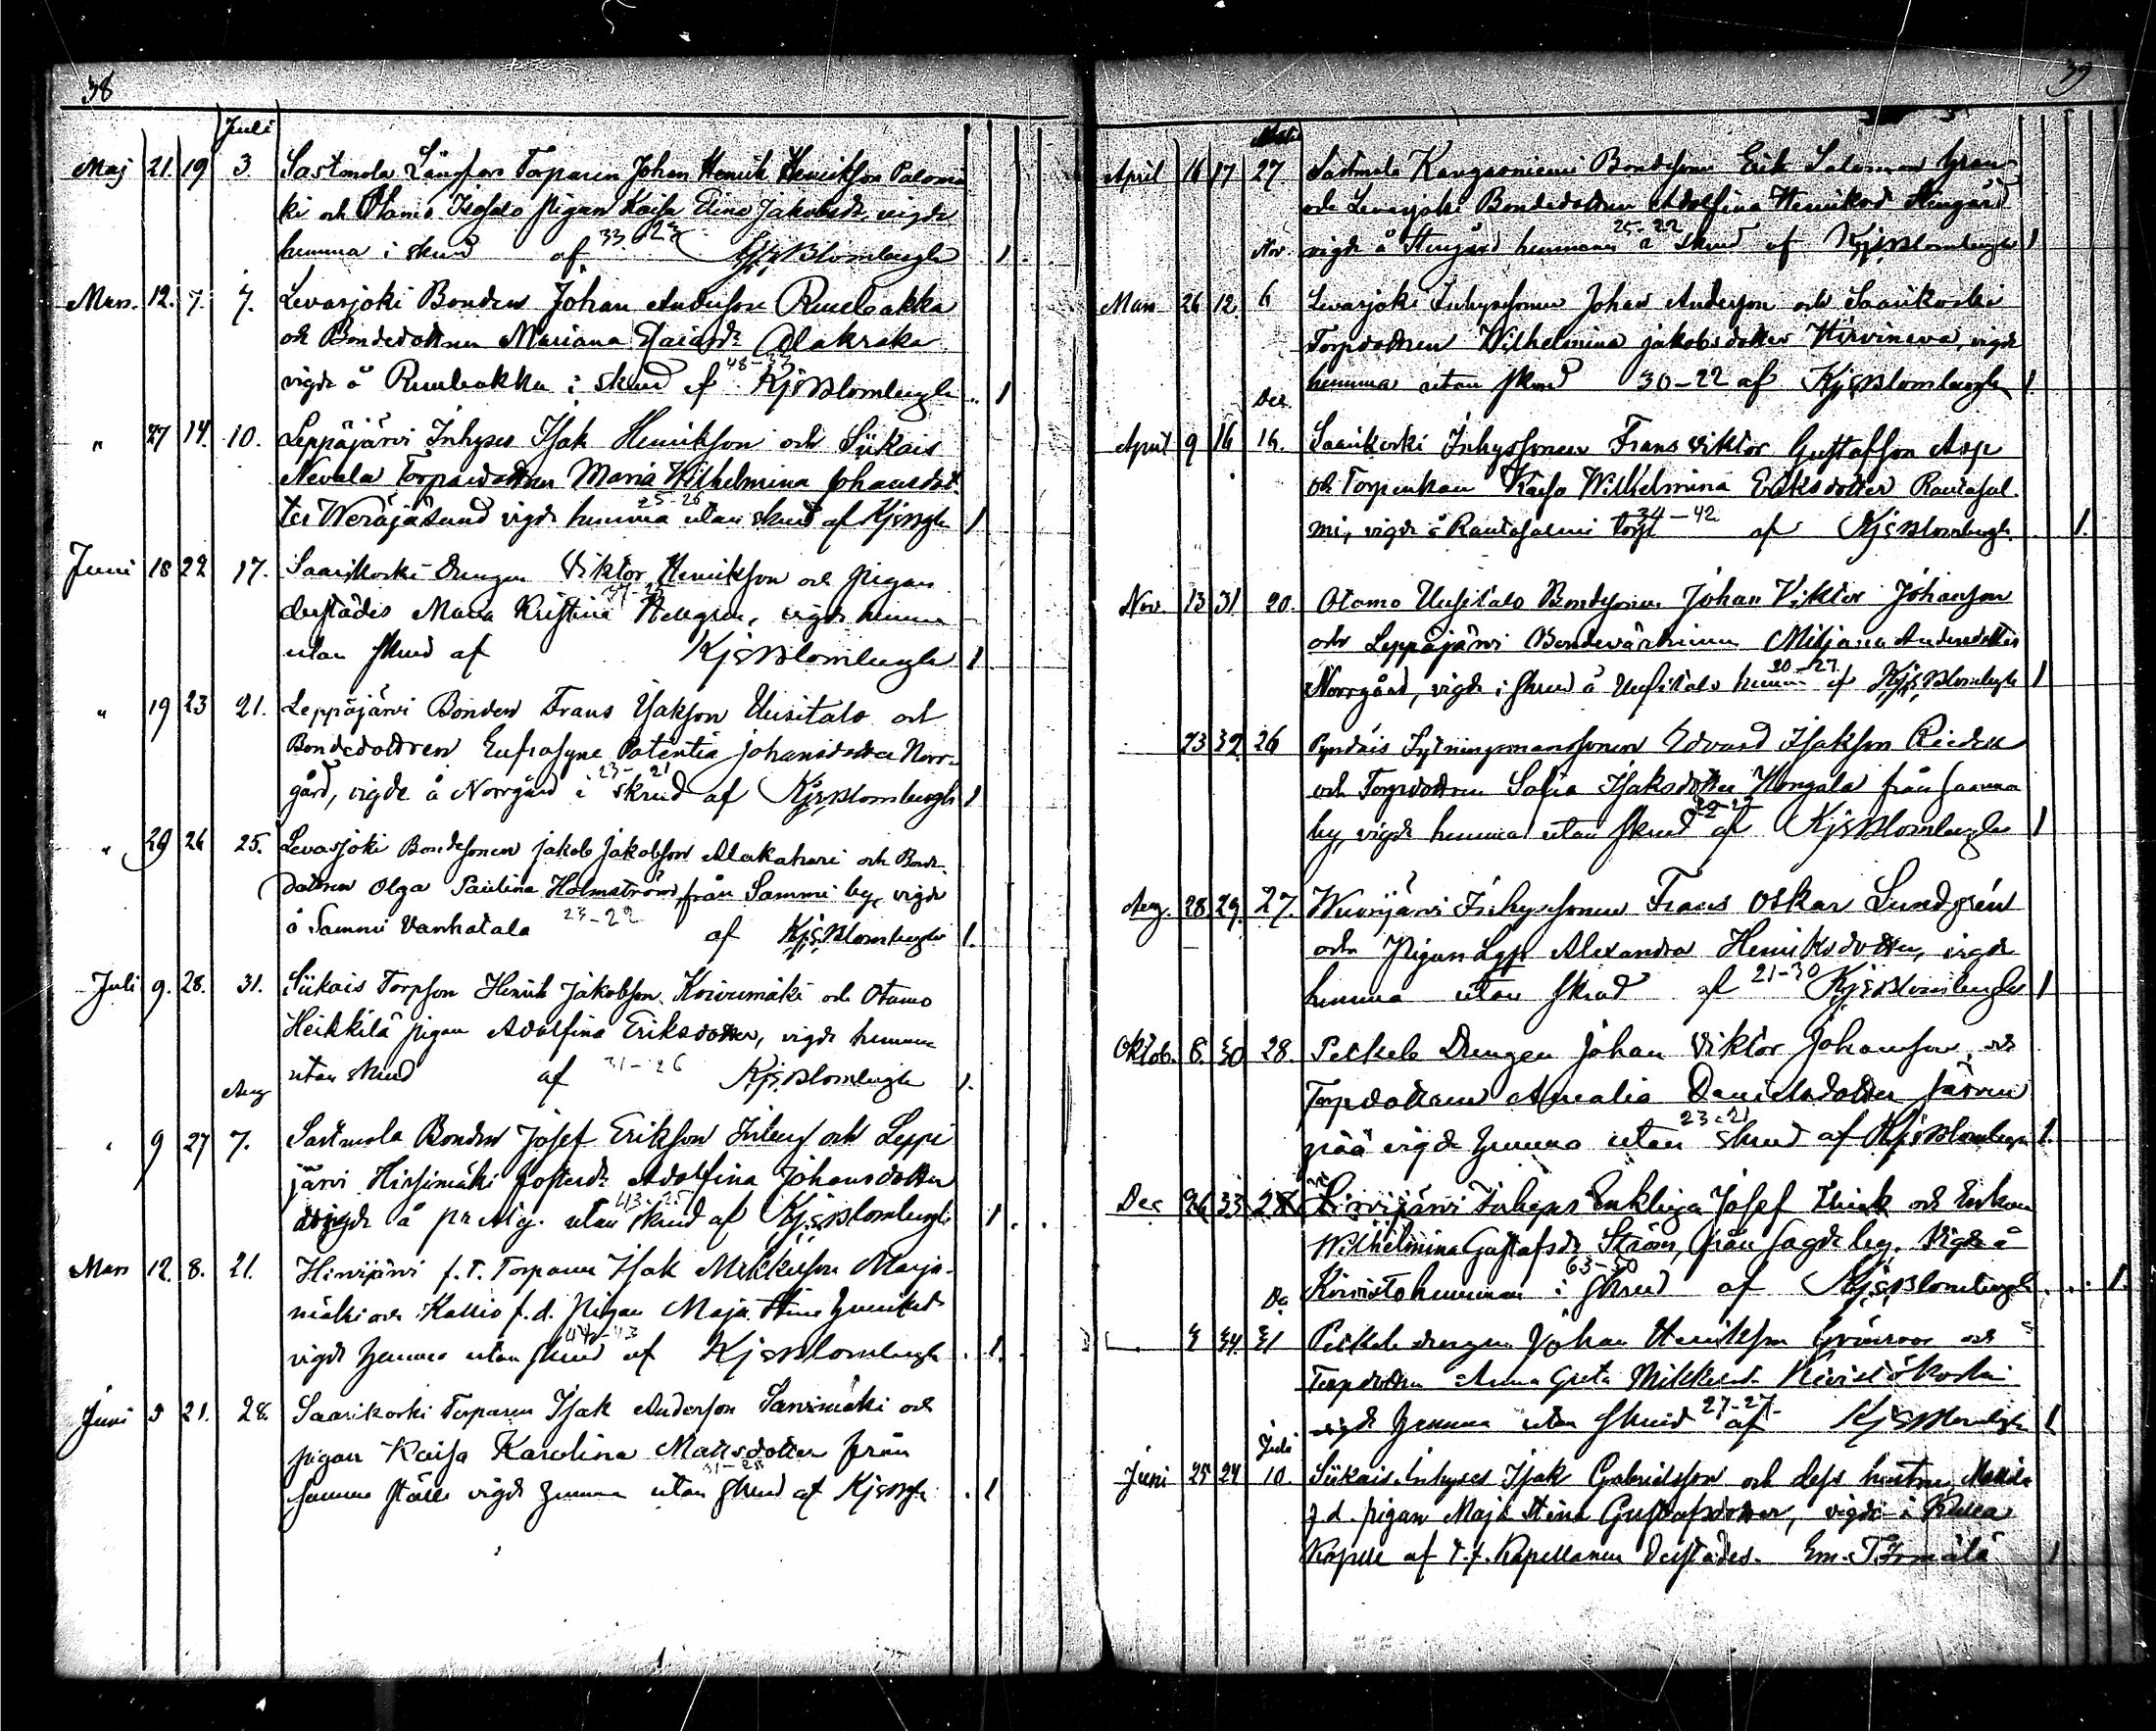 38
Juli
Maj 21. 19 3 Sastmola Långfors Torparen Johan Henrik Henriksson Palomä
ki och Otamo Isotalo pigan Kaisa Elina Jakobsdr, vigde
hemma i skrud af 33-23 KjEBlombergh 1
Mars. 12. 7. 7. Levasjoki Bonden Johan Andersson Ruuhakka
och Bondedottren Mariana Isaksdr Alakraka
vigde å Ruuhakka i skrud af 48-33 KjEBlombergh 1
" 27 14. 10. Leppäjärvi Inhyses Isak Henriksson och Siikais
Nevala Torparedottren Maria Wilhelmina Johansdot-
ter Weräjäsund vigde hemma utan skrud af KjEBgh 1
25-26
Juni 18 22 17. Saarikoski Drengen Viktor Henriksson och pigan
derstädes Maria Kristina Hellgren, vigde hemma
utan skrud af KjEBlombergh 1
" 19 23 21. Leppäjärvi Bonden Frans Isaksson Uusitalo och
Bondedottren Eufrosyne Potentia Johansdotter Norr-
gård, vigde å Norrgård i skrud af KjEBlombergh 1
23-21
" 29 26 25. Levasjoki Bondesonen Jakob Jakobsson Alakahari och Bonde-
dottren Olga Paulina Holmström från Sammi by, vigde
å Sammi Vanhatalo 23-22 af KjEBlombergh 1.
Juli 9. 28. 31. Siikais Torpson Henrik Jakobsson Koivumäki och Otamo
Heikkilä pigan Adolfina Eriksdotter, vigde hemma
utan skrud af 31-26 KjEBlombergh 1.
Aug
" 9 27 7. Sastmola Bonden Josef Eriksson Inberg och Leppä
järvi Hirsimäki fosterdr Adolfina Johansdotter
vigde å utan skrud af KjEBlombergh 1
43-25
Mars 12. 8. 21. Hirvijärvi f.d. Torparen Isak Mikkelsson Marja-
mäki och Kallio f.d. pigan Maja Stina Henriksdr
vigde hemma utan skrud af KjEBlombergh 1.
44-43
Juni 5 21. 28. Saarikoski Torparen Isak Andersson Sarvimäki och
pigan Kaisa Karolina Mattsdotter från
samma ställe vigde hemma utan skrud af KjEBgh 1
31-28
39
April 16 17 27. Sastmola Kangasniemi Bondesonen Erik Salomon Gran-
och Levasjoki Bondedottren Adolfina Henriksd Stengård
Nov. vigde å Stengård hemman i skrud af KjEBlombergh 1
25-22
Mars 26 12. 6 Levasjoki Inhysessonen Johan Andersson och Saarikoski
Torpdottren Wilhelmina Jakobsdotter Hirvineva, vigde
hemma utan skrud 30-22 af KjEBlombergh 1.
Dec.
April 9 16 16. Saarikoski Inhyssonen Frans Viktor Gustafsson Asp
och Torpenkan Kaisa Wilhelmina Eriksdotter Rautasal-
mi, vigde å Rautasalmi torp af KjEBlombergh. 1.
34-42
Nov. 13 31 20. Otamo Uusitalo Bondesonen Johan Viktor Johansson
och Leppäjärvi Bondevärdinnan Andersdotter
Norrgård, vigde i skrud å Uusitalo hemman af KjEBlombergh 1
20-27.
23 32 26 Pyntäis Sytningsmanssonen Edvard Isaksson
och Torpdottren Sofia Isaksdotter Hongala från samma
by, vigde hemma utan skrud af KjEBlombergh 1
Aug. 28 29. 27. Wuorijärvi Inhyssonen Frans Oskar Lundgrén
och Pigan Alexandra Henriksdotter, vigde
hemma utan skrud af 21-30 KjEBlombergh 1
Oktob. 8. 30 28. Peskele Drengen Johan Viktor Johansson och
Torpdottren Amalia Danielsdotter Järven
pää vigde hemma utan skrud af KjEBlombergh 1.
23-21
Dec 26 33 28 Hirvijärvi Inhyses Enklinga Josef och Enkan
Wilhelmina Gustafsdr Ström, från sagde by. Vigde å
Koivisto hemman i skrud af KjEBlombergh 1.
63-50
De
3 34. 31 Peskele drengen Johan Henriksson Grönroos och
Torpdottren Anna Greta Mikkelsdr
vigde hemma utan skrud af KjEBlombergh 1
27-27
Juli
Juni 25 24 10. Siikais Inhyses Isak Gabrielsson och dess hustru
f.d. pigan Maja Stina Gustafsdotter, vigde i
Kapell af t.f. Kapellanen derstädes. Em. 1